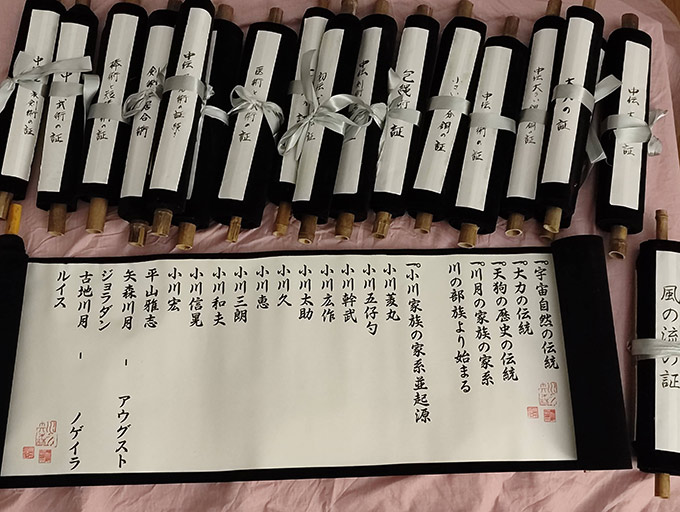 中伝
武術の証
中伝
剣術居合術
医術の証
初伝
包縄術の証
小さい分銅の証
中伝
術の証
中伝大い分銅の証
大力の証
中伝
の証
風の流の証
宇宙自然の伝統
大力の伝統
天狗の歴史の伝統
川月の家族の家系
川の部族より始まる
小川家族の家系並起源
小川菱丸
小川五仔勺
小川幹武
小川広作
小川太助
小川久
小川恵
小川三朗
小川和夫
小川信晃
小川宏
平山雅志
矢森川月 ー アウグスト
ジョラダン
古地川月 ー ノゲイラ
ルイス